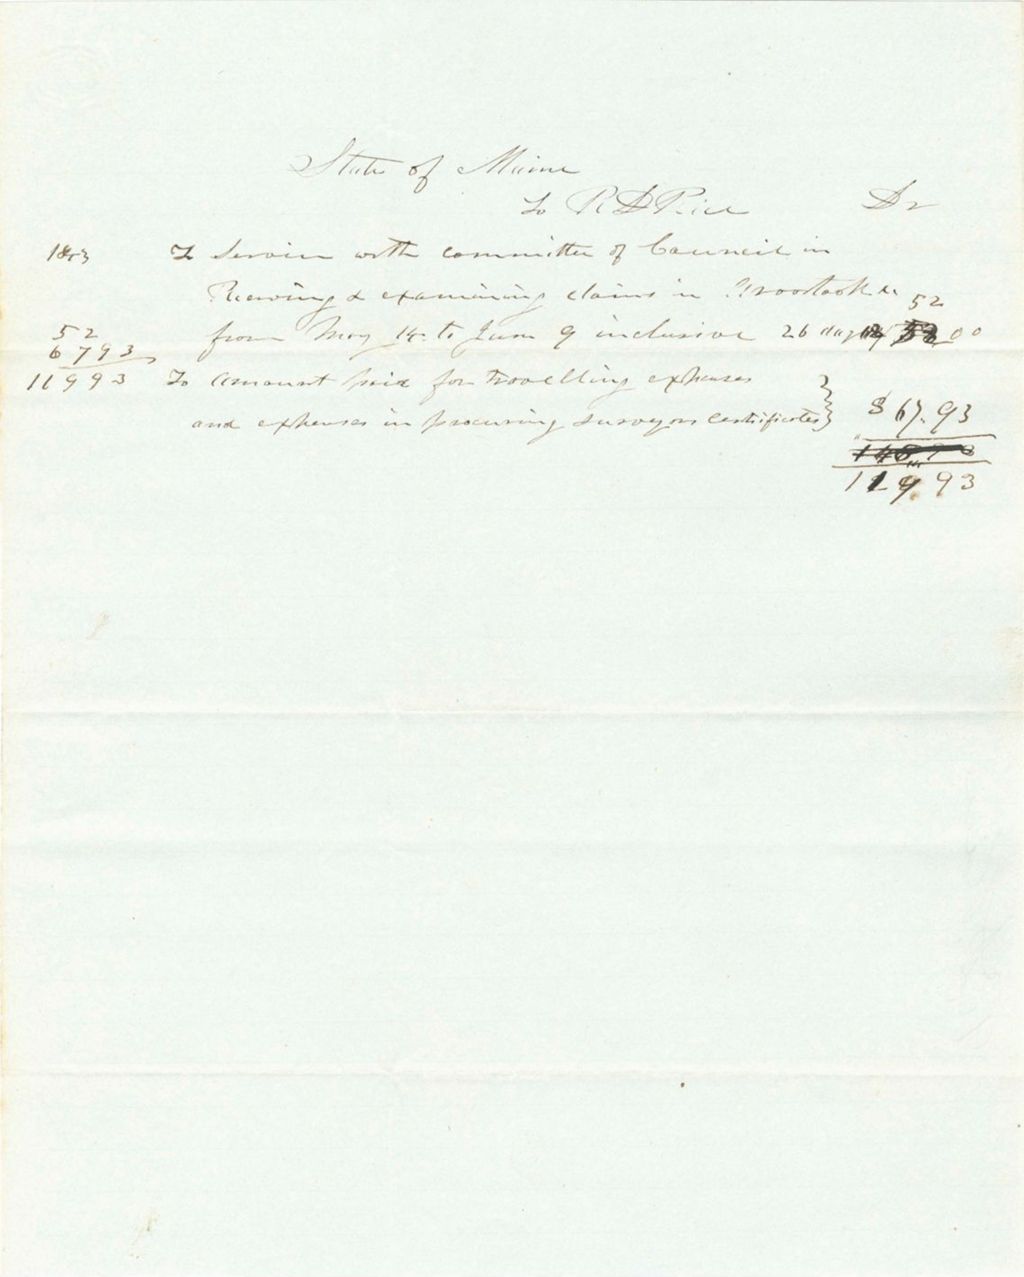 State of Maine
To R D Rice Dr
1843 To Service with committee of Council in
Viewing & examining claims in Aroostook &c
from May 14 to June 9 inclusive 26 days 52 00
52
67 93
119 93
To amount paid for travelling expenses
and expenses in procuring surveyors certificates } $ 67.93
119.93